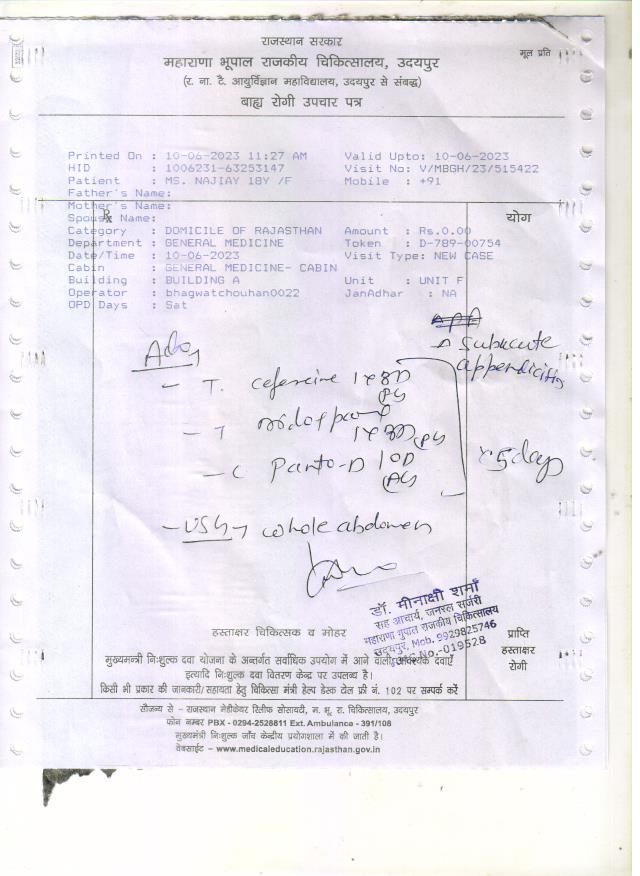 राजस्थान सरकार
मूल प्रति
महाराणा भूपाल राजकीय चिकित्सालय, उदयपुर
(र. ना. टै. आयुर्विज्ञान महाविद्यालय, उदयपुर से संबद्ध)
बाह्य रोगी उपचार पत्र
Printed On : 10-06-2023 11:27 AM Valid Upto: 10-06-2023
HID : 1006231-63253147 Visit No: V/MBGH/23/515422
Patient : MS. NAJIAY 18Y /F Mobile : +91
Father's Name:
Mother's Name:
Rx
योग
Spouse Name:
Category : DOMICILE OF RAJASTHAN Amount : Rs.0.00
Department : GENERAL MEDICINE Token : D-789-00754
Date/Time : 10-06-2023 Visit Type: NEW CASE
Cabin : GENERAL MEDICINE- CABIN
Building : BUILDING A Unit : UNIT F
Operator : bhagwatchouhan0022 JanAdhar : NA
OPD Days : Sat
Subacute
appendicitis
Adv
- T. 1 x BD
- T
1 x BD
- C Panto-D 1 OD
x 5 day
- USG → whole abdomen
डॉ. मीनाक्षी शर्मा
सह आचार्य, जनरल सर्जरी
महाराणा भूपाल राजकीय चिकित्सालय
उदयपुर, Mob. 9929825746
No.-019528
हस्ताक्षर चिकित्सक व मोहर
प्राप्ति
हस्ताक्षर
रोगी
मुख्यमन्त्री निःशुल्क दवा योजना के अन्तर्गत सर्वाधिक उपयोग में आने वाली आवश्यक दवाएँ
इत्यादि निःशुल्क दवा वितरण केन्द्र पर उपलब्ध है।
किसी भी प्रकार की जानकारी/सहायता हेतु चिकित्सा मंत्री हेल्प डेस्क टोल फ्री नं. 102 पर सम्पर्क करें
सौजन्य से – राजस्थान मेडीकेयर रिलीफ सोसायटी, म. भू. रा. चिकित्सालय, उदयपुर
फोन नम्बर PBX - 0294-2528811 Ext. Ambulance - 391/108
मुख्यमंत्री निःशुल्क जाँच केन्द्रीय प्रयोगशाला में की जाती है।
वेबसाईट – www.medicaleducation.rajasthan.gov.in